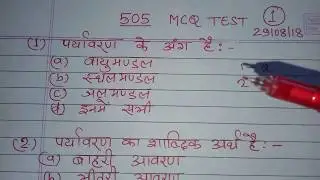 505 MCQ TEST 1
29/08/18
(1) पर्यावरण के अंग है:-
(a) वायुमण्डल
(b) स्थलमण्डल
(c) जलमण्डल
(d) इनमें सभी
(2) पर्यावरण का शाब्दिक अर्थ है:-
(a) बाहरी आवरण
(b) भीतरी आवरण